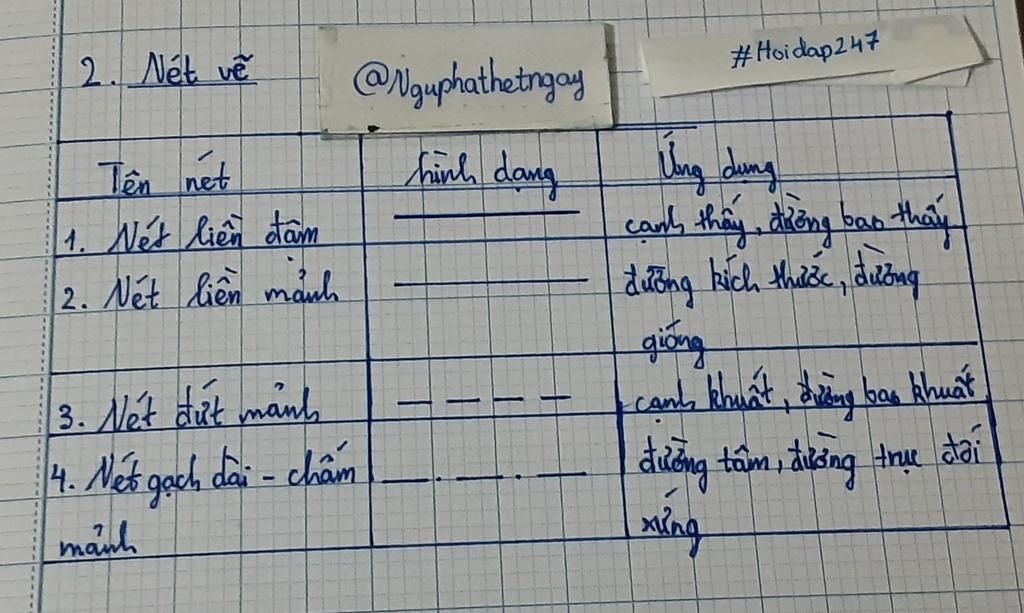 2. Nét vẽ
@Nguphathetngay
#Hoidap247
Tên nét hình dạng Ứng dụng
1. Nét liền đậm cạnh thấy, đường bao thấy
2. Nét liền mảnh đường kích thước, đường
gióng
3. Nét đứt mảnh cạnh khuất, đường bao khuất
4. Nét gạch dài - chấm đường tâm, đường trục đối
mảnh xứng